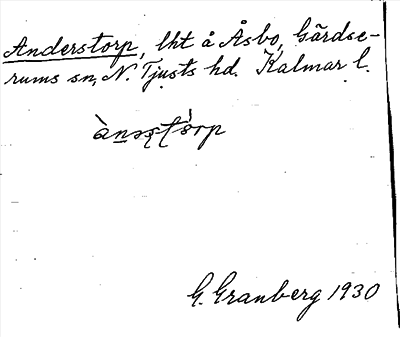 Anderstorp, lht å Åsbo, Gärdse-
rums sn, N. Tjusts hd. Kalmar l.
G. Granberg 1930